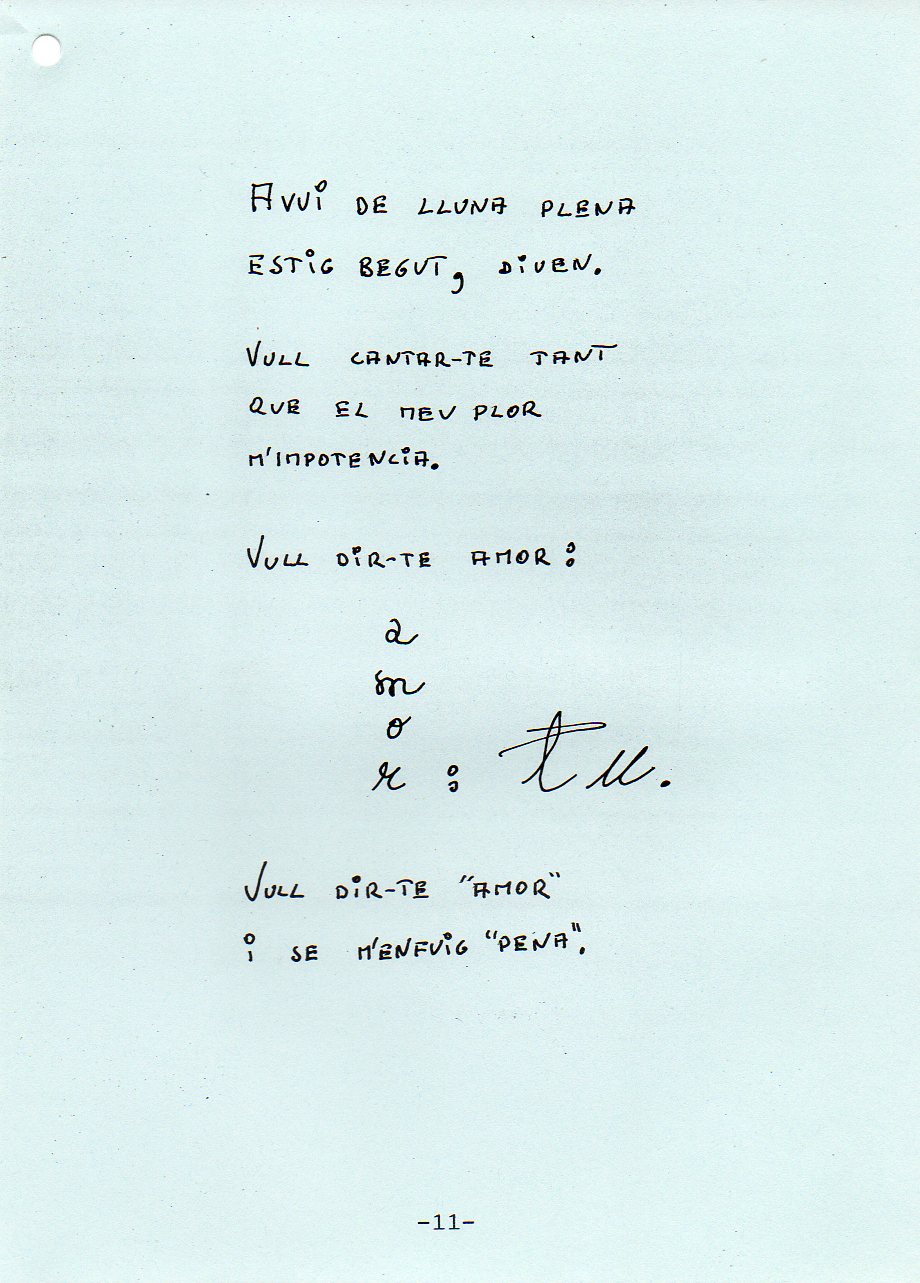 AVUi DE LLUNA PLENA
ESTiG BEGUT, DiUEN.
VULL CANTAR-TE TANT
QUE EL MEU PLOR
M'IMPOTENCiA.
VULL DiR-TE AMOR:
a
m
o
r : tu.
VULL DiR-TE "AMOR"
i SE M'ENFUiG "PENA".
-11-